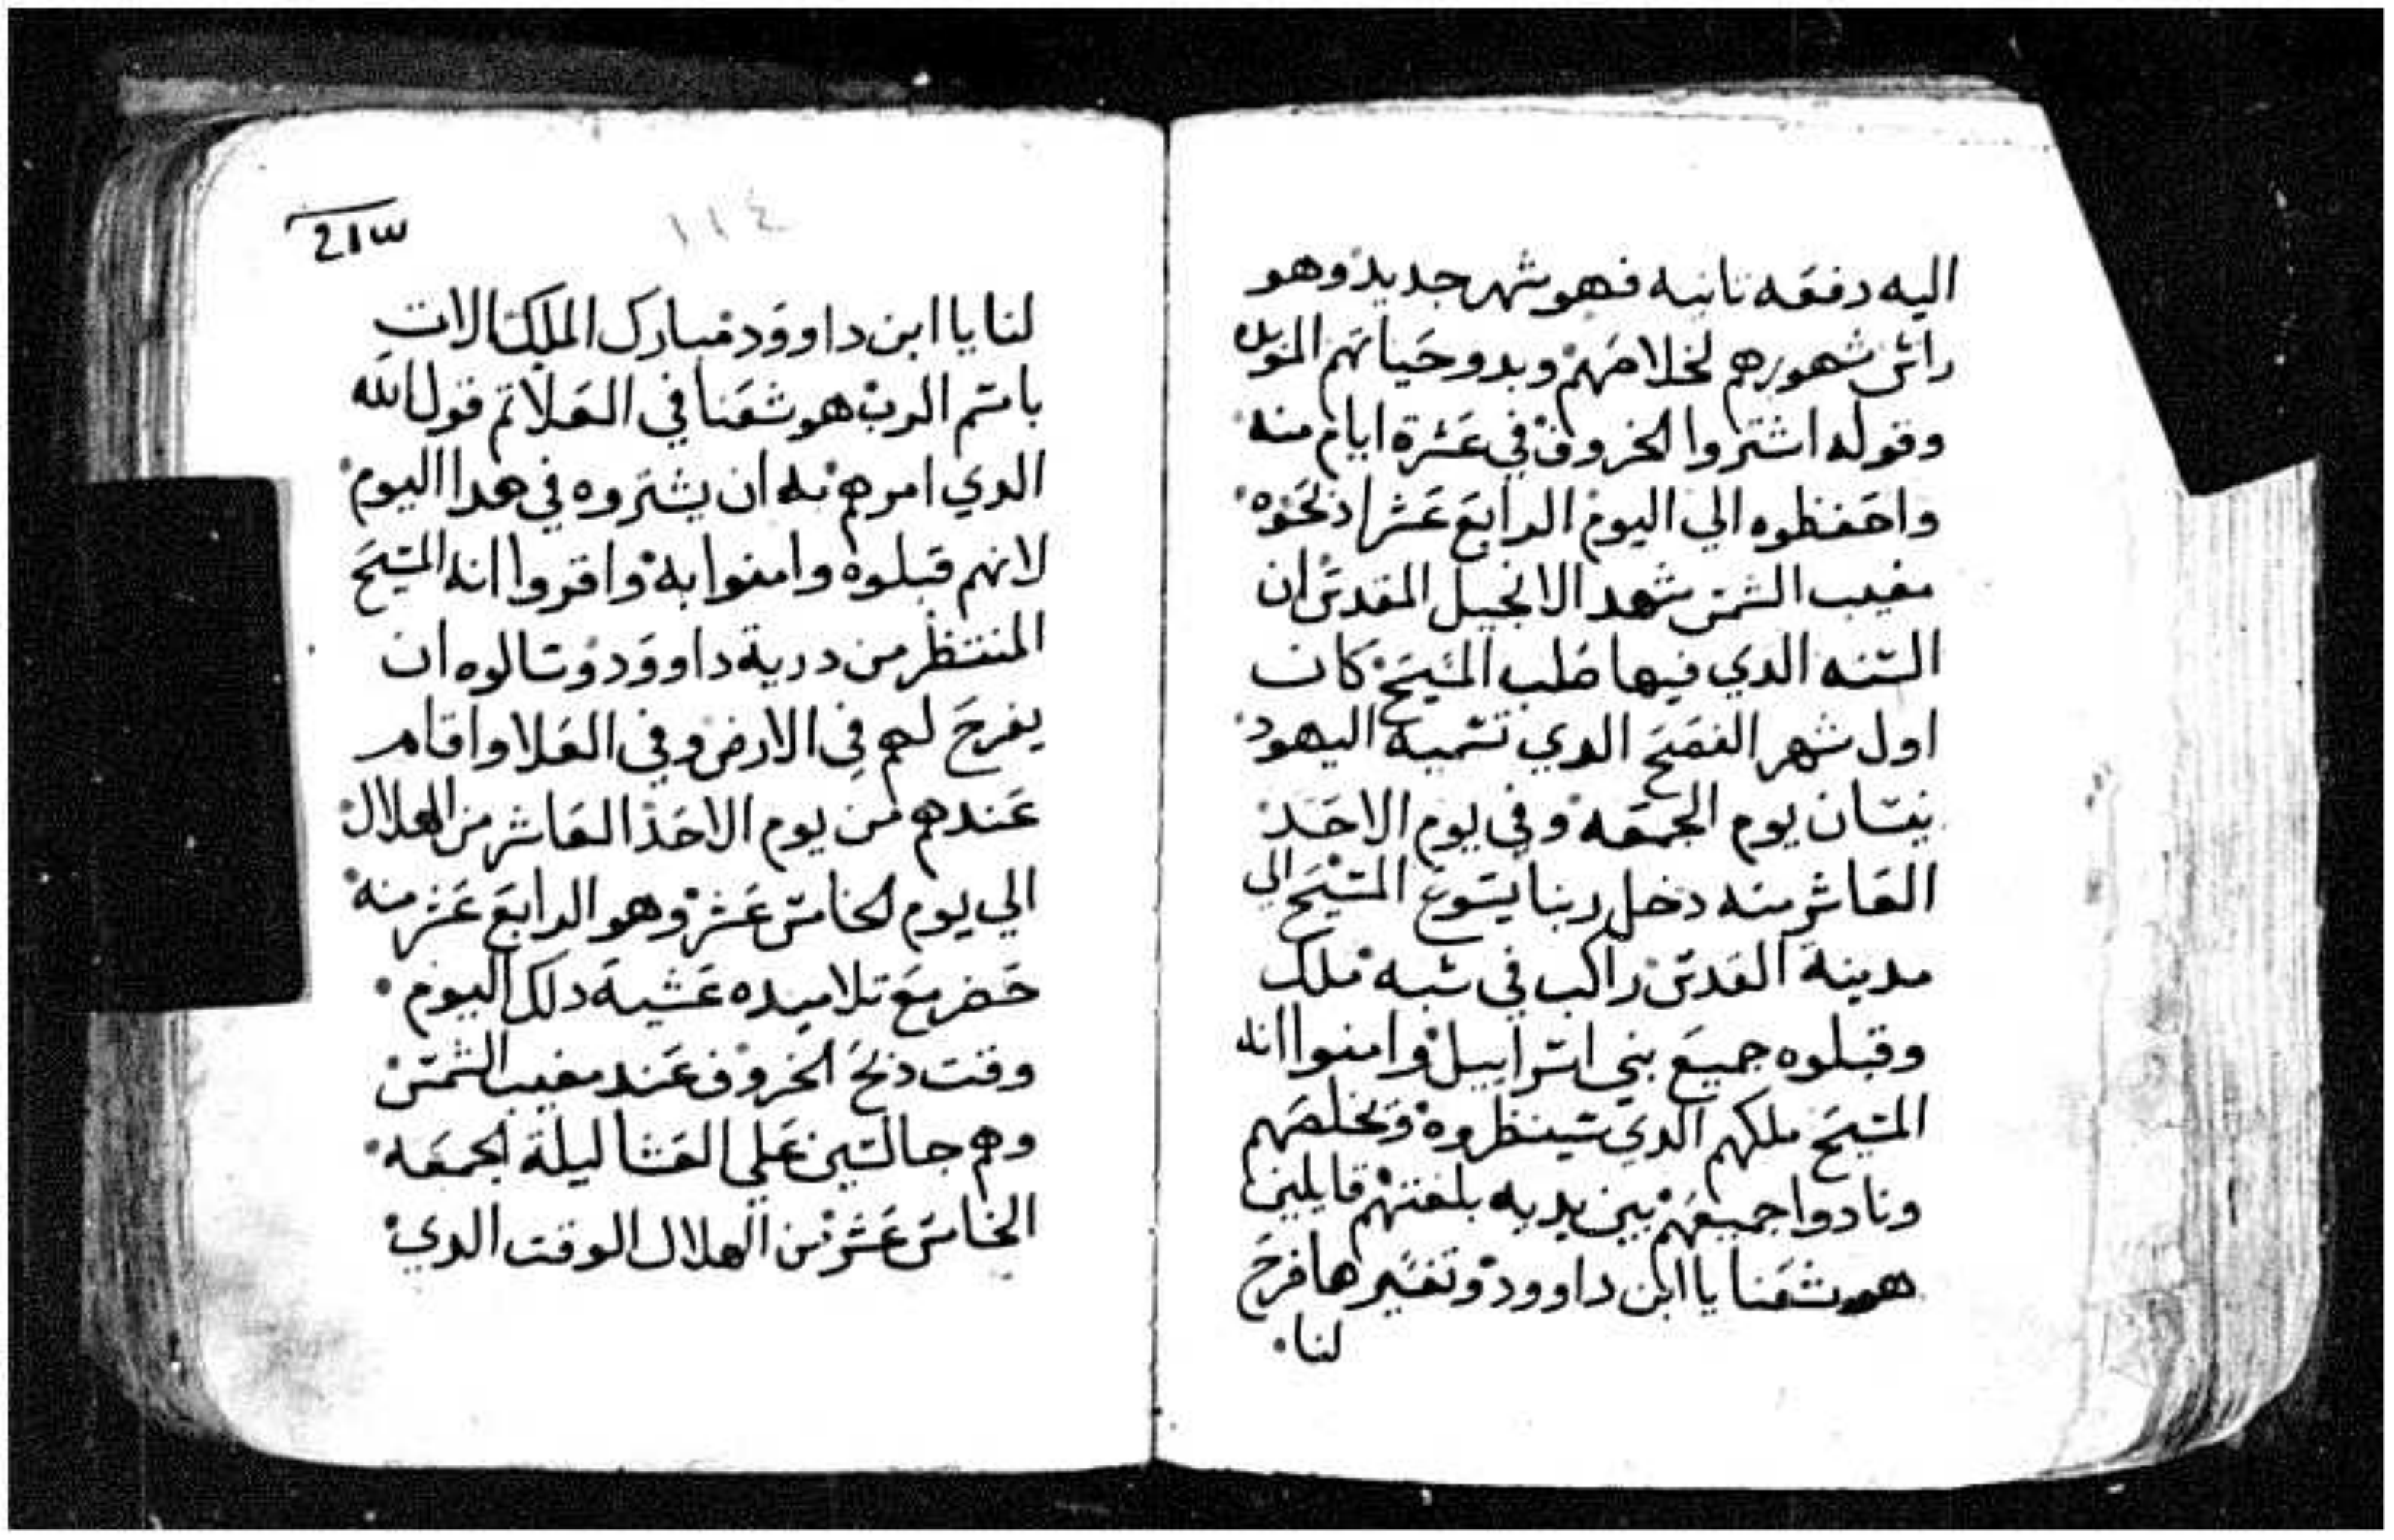 اليه دفعه تانيه فهو شهر جديد وهو
راس شهورهم لخلاصهم وبدو حياتهم
وقوله اشتروا الخروف في عشرة ايام منه
واحفظوه الي اليوم الرابع عشر اذبحوه
مغيب الشمس شهد الانجيل المقدس ان
السنه الدي فيها صلب المسيح كان
اول شهر الفصح الدي تسميه اليهود
نيسان يوم الجمعه وفي يوم الاحد
العاشر منه دخل ربنا يسوع المسيح الي
مدينة القدس راكب في شبه ملك
وقبلوه جميع بني اسراييل وامنوا انه
المسيح ملكهم الدي سينظروه ويخلصهم
ونادوا جميعهم بين يديه بلغتهم قايلين
هوشعنا يا ابن داوود وتفسيرها فرح
لنا
١١٤
لنا يا ابن داوود مبارك الملك الات
باسم الرب هوشعنا في العلا تم قول الله
الدي امرهم به ان يشتروه في هدا اليوم
لانهم قبلوه وامنوا به واقروا انه المسيح
المنتظر من درية داوود وسالوه ان
يفرح لهم في الارض وفي العلا واقام
عندهم من يوم الاحد العاشر من الهلال
الي يوم الخامس عشر وهو الرابع عشر منه
حضر مع تلاميده عشية دلك اليوم
وقت دبح الخروف عند مغيب الشمس
وهم جالسين علي العشا ليلة الجمعه
الخامس عشر من الهلال الوقت الدي